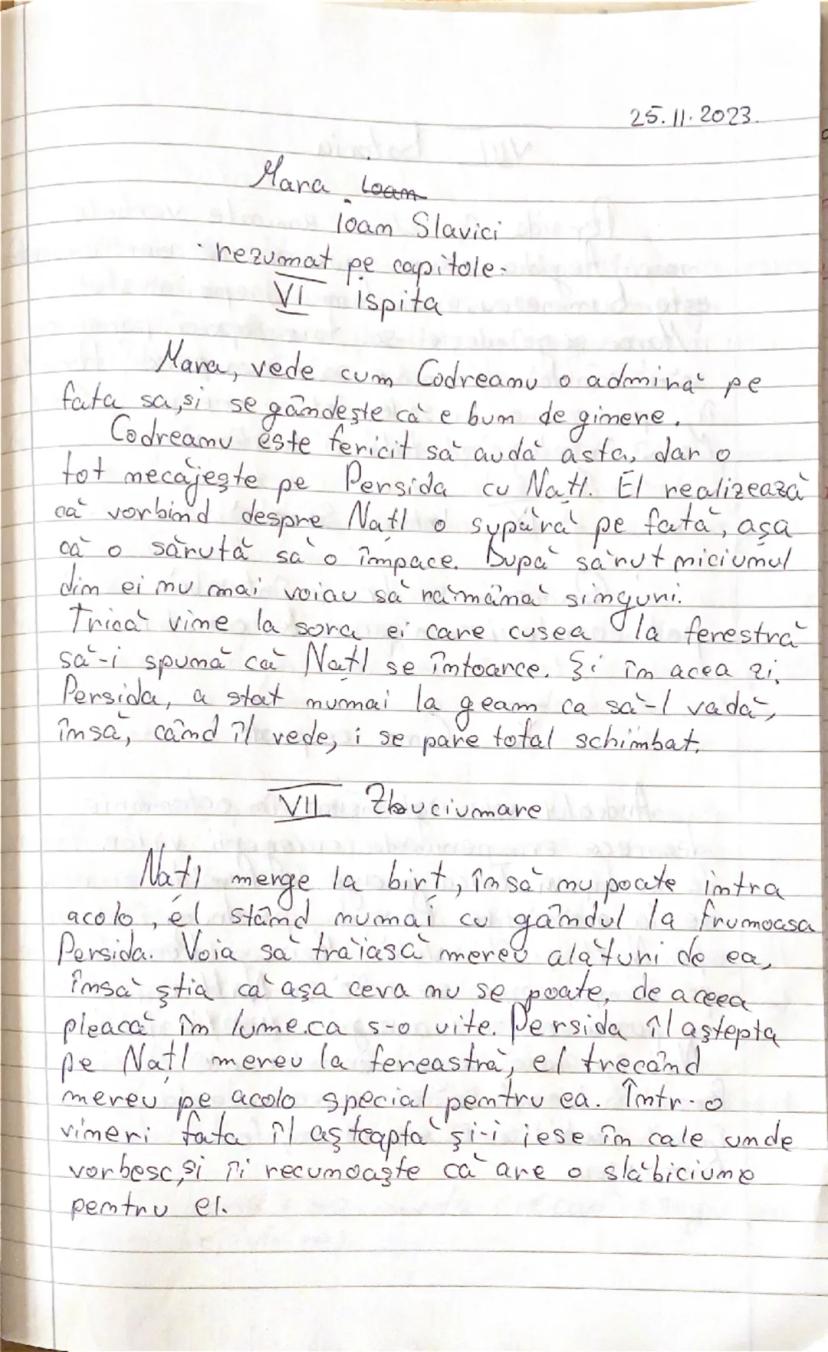 25.11.2023.
Mara Ioan
Ioan Slavici
· rezumat pe capitole-
VI Ispita
Mara, vede cum Codreanu o admiră pe
fata sa, și se gândește că e bun de ginere.
Codreanu este fericit să audă asta, dar o
tot necăjește pe Persida cu Națl. El realizează
că vorbind despre Națl o supără pe fată, așa
că o sărută să o împace. După sărut niciunul
din ei nu mai voiau să rămână singuri.
Trică vine la sora ei care cusea la ferestră
să-i spună că Națl se întoarce. Și în acea zi,
Persida, a stat numai la geam ca să-l vadă,
însă, când îl vede, i se pare total schimbat.
VII Zbuciumare
Națl merge la birt, însă nu poate intra
acolo, el stând numai cu gândul la frumoasa
Persida. Voia să trăiască mereu alături de ea,
însă știa că așa ceva nu se poate, de aceea
pleacă în lume ca s-o uite. Persida îl aștepta
pe Națl mereu la fereastră, el trecând
mereu pe acolo special pentru ea. Într-o
vineri fata îl așteaptă și-i iese în cale unde
vorbesc, și îi recunoaște că are o slăbiciune
pentru el.